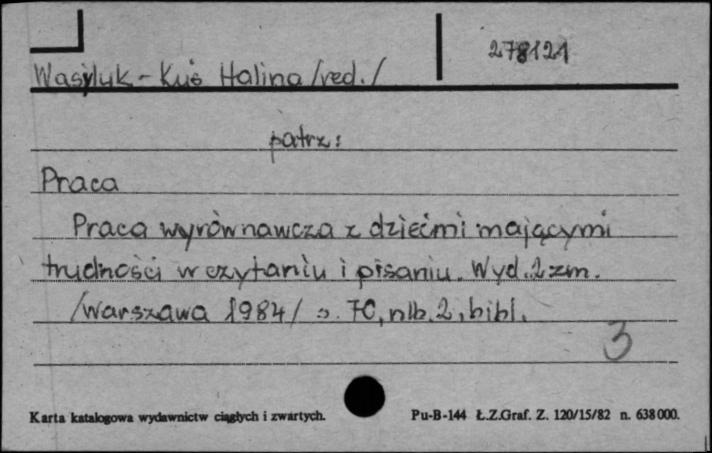 278121
Wasyluk-Kuś Halina /red./
patrz:
Praca
Praca wyrównawcza z dziećmi mającymi
trudności w czytaniu i pisaniu. Wyd. 2 zm.
/Warszawa 1984/ s. 70, nlb. 2, bibl.
3
Karta katalogowa wydawnictw ciągłych i zwartych. Pu-B-144 Ł.Z.Graf. Z. 120/15/82 n. 638000.